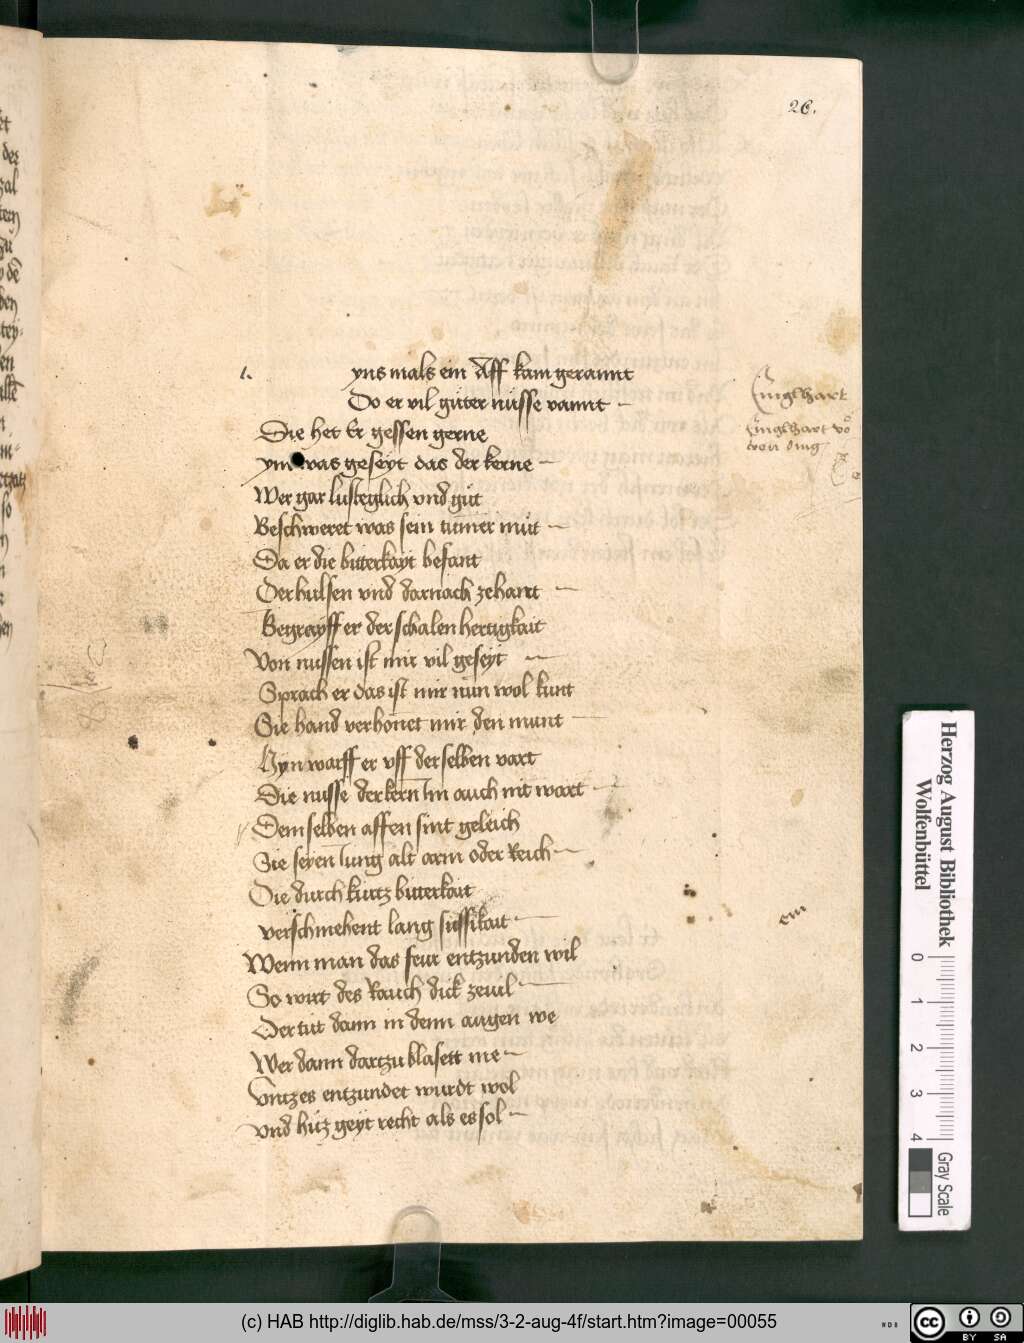 26.
1.
yns mals ein Aff kam gerannt
Do er vil guter nusse vannt
Die het Er gessen gerne
ym was geseyt das der kerne
Wer gar lusteglich vnd gut
Beschweret was sein tumer mut
Da er die bitterkayt befant
Der hulsen vnd darnach zehant
Begrayff er der schalen hertigkait
Von nussen ist mir vil geseyt
Sprach er das ist mir nun wol kunt
Sie hand verhonet mir den munt
Hyn warff er vff der selben vart
Die nusse der kern Im auch nit wart
Dem selben affen sint geleich
Sie seyen Iung alt arm oder Reich
Die durch kurtz bitterkait
verschmehent lang sussikait
Wenn man das feur entzunden wil
So wirt des Rauch dick zeuil
Der tut dann in denn augen we
Wer dann dartzu blasett me
Vntzes entzundet wurdt wol
vnd hitz geyt recht als es sol
Englhart
Englhart vo
ein
Herzog August Bibliothek
Wolfenbüttel
0 1 2 3 4
Gray Scale
(c) HAB http://diglib.hab.de/mss/3-2-aug-4f/start.htm?image=00055
WDB
cc
BY SA